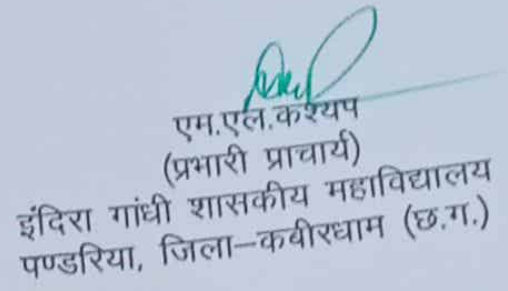 एम.एल.कश्यप
(प्रभारी प्राचार्य)
इंदिरा गांधी शासकीय महाविद्यालय
पण्डरिया, जिला–कबीरधाम (छ.ग.)